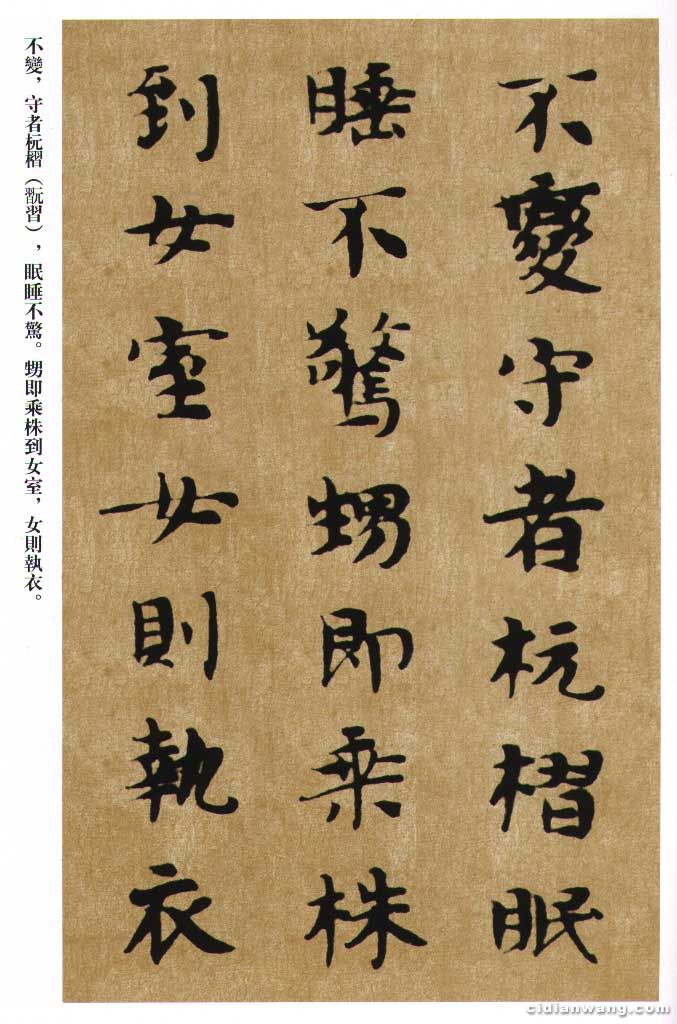 不變守者杬槢眠
睡不驚甥即乘株
到女室女則執衣
不變，守者杬槢（翫習），眠睡不驚。甥即乘株到女室，女則執衣。
cidianwang.com